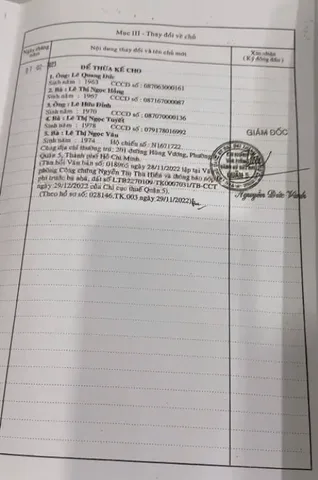 Mục III - Thay đổi về chủ
Ngày tháng năm
Nội dung thay đổi và tên chủ mới
Xác nhận
(Ký đóng dấu)
ĐỂ THỪA KẾ CHO
1. Ông: Lê Quang Đức
Sinh năm : 1963 CCCD số : 087063000161
2. Bà : Lê Thị Ngọc Hồng
Sinh năm : 1967 CCCD số : 087167000087
3. Ông : Lê Hữu Định
Sinh năm : 1970 CCCD số : 087070000136
4. Bà : Lê Thị Ngọc Tuyết
Sinh năm : 1978 CCCD số : 079178016992
5. Bà : Lê Thị Ngọc Vân
Sinh năm : 1974 Hộ chiếu số : N1611722
Cùng địa chỉ thường trú: 291 đường Hùng Vương, Phường
Quận 5, Thành phố Hồ Chí Minh.
(Theo Văn bản số: 018965 ngày 28/11/2022 lập tại Văn
phòng Công chứng Nguyễn Thị Thu Hiền và thông báo nộp lệ
phí trước bạ nhà, đất số LTB2270109-TK0007031/TB-CCT
ngày 29/12/2022 của Chi cục thuế Quận 5).
(Theo hồ sơ số: 028146.TK.003 ngày 29/11/2022)
GIÁM ĐỐC
Nguyễn Đức Vinh